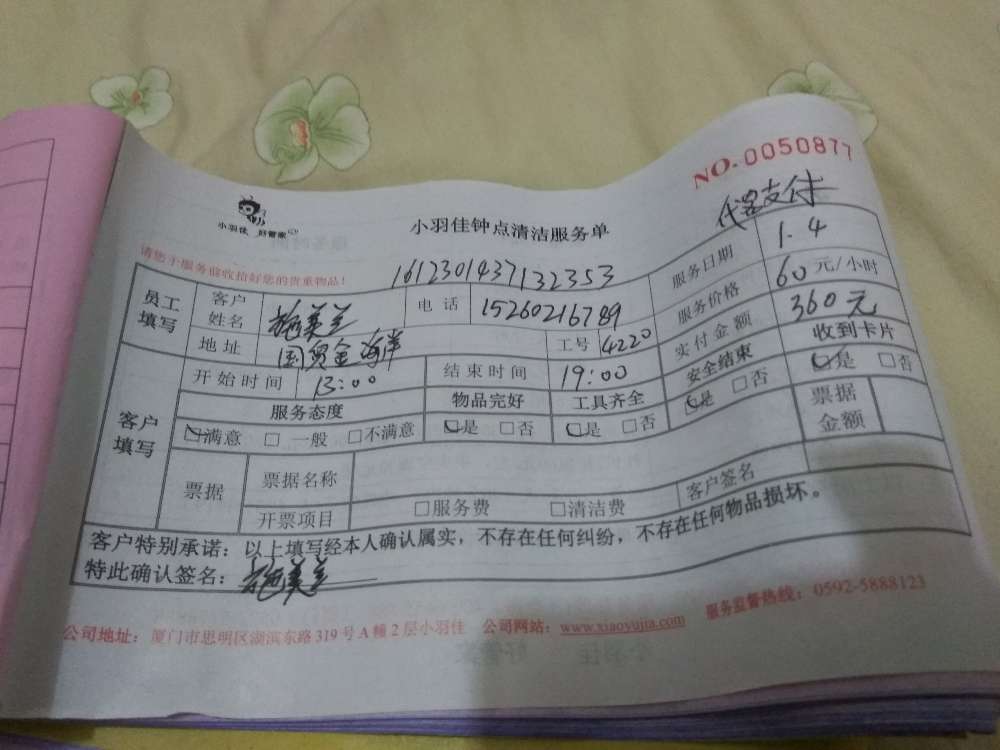 NO.0050877
代客支付
小羽佳 好管家
小羽佳钟点清洁服务单
请您于服务前收拾好您的贵重物品！
1612301437132353
服务日期 1.4
员工填写 客户姓名 施美兰 电话 15260216789 服务价格 60元/小时
地址 国贸金海岸 工号 4220 实付金额 360元
开始时间 13:00 结束时间 19:00 安全结束 收到卡片
客户填写 服务态度 物品完好 工具齐全 是 否 是 否
满意 一般 不满意 是 否 是 否 票据金额
票据 票据名称
开票项目 服务费 清洁费 客户签名
客户特别承诺：以上填写经本人确认属实，不存在任何纠纷，不存在任何物品损坏。
特此确认签名：施美兰
公司地址：厦门市思明区湖滨东路319号A幢2层小羽佳 公司网站：www.xiaoyujia.com 服务监督热线：0592-5888123